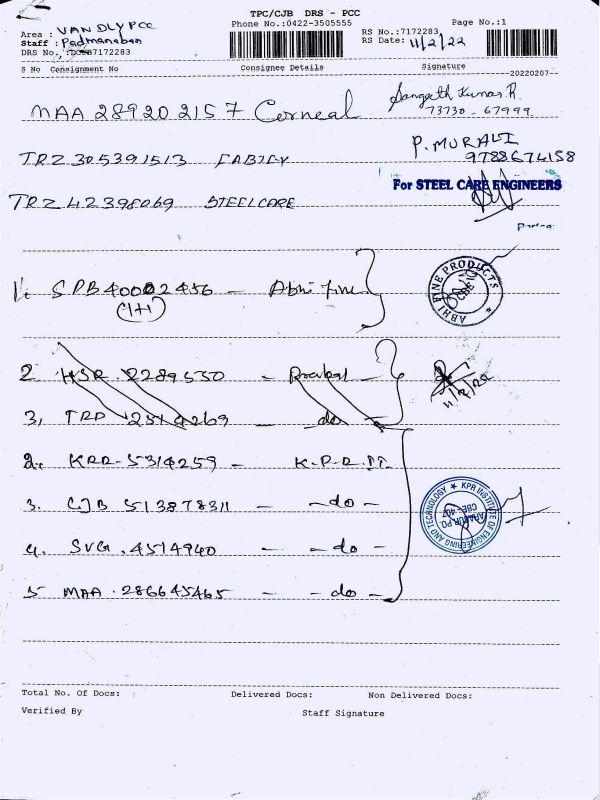 TPC/CJB DRS - PCC
Phone No.:0422-3505555
Page No.:1
Area : VANDLYPCC
Staff : Padmanaban
DRS No.,:DCS87172283
RS No.:7172283
RS Date: 11/2/22
S No Consignment No Consignee Details Signature
20220207
MAA 289202157 Corneal Sangeeth Kumar.R
73730 - 67999
TRZ 305391513 P. MURALI
9788674158
TRZ 42398069 STEELCARE For STEEL CARE ENGINEERS
1. SPB 40002456 - Abhi fine ABHI FINE PRODUCTS
(1+1) CBE
2 HSR. 2289550 -
11/2/22
3, TRP 2514269 - do -
2. KRR-5314259 - K.P.R.IT
3. CJB 513878311 - do -
KPR INSTITUTE OF ENGINEERING AND TECHNOLOGY
ARASUR PO
CBE-407
4. SVG.4514940 - - do -
5 MAA.286645465 - - do -
Total No. Of Docs: Delivered Docs: Non Delivered Docs:
Verified By Staff Signature